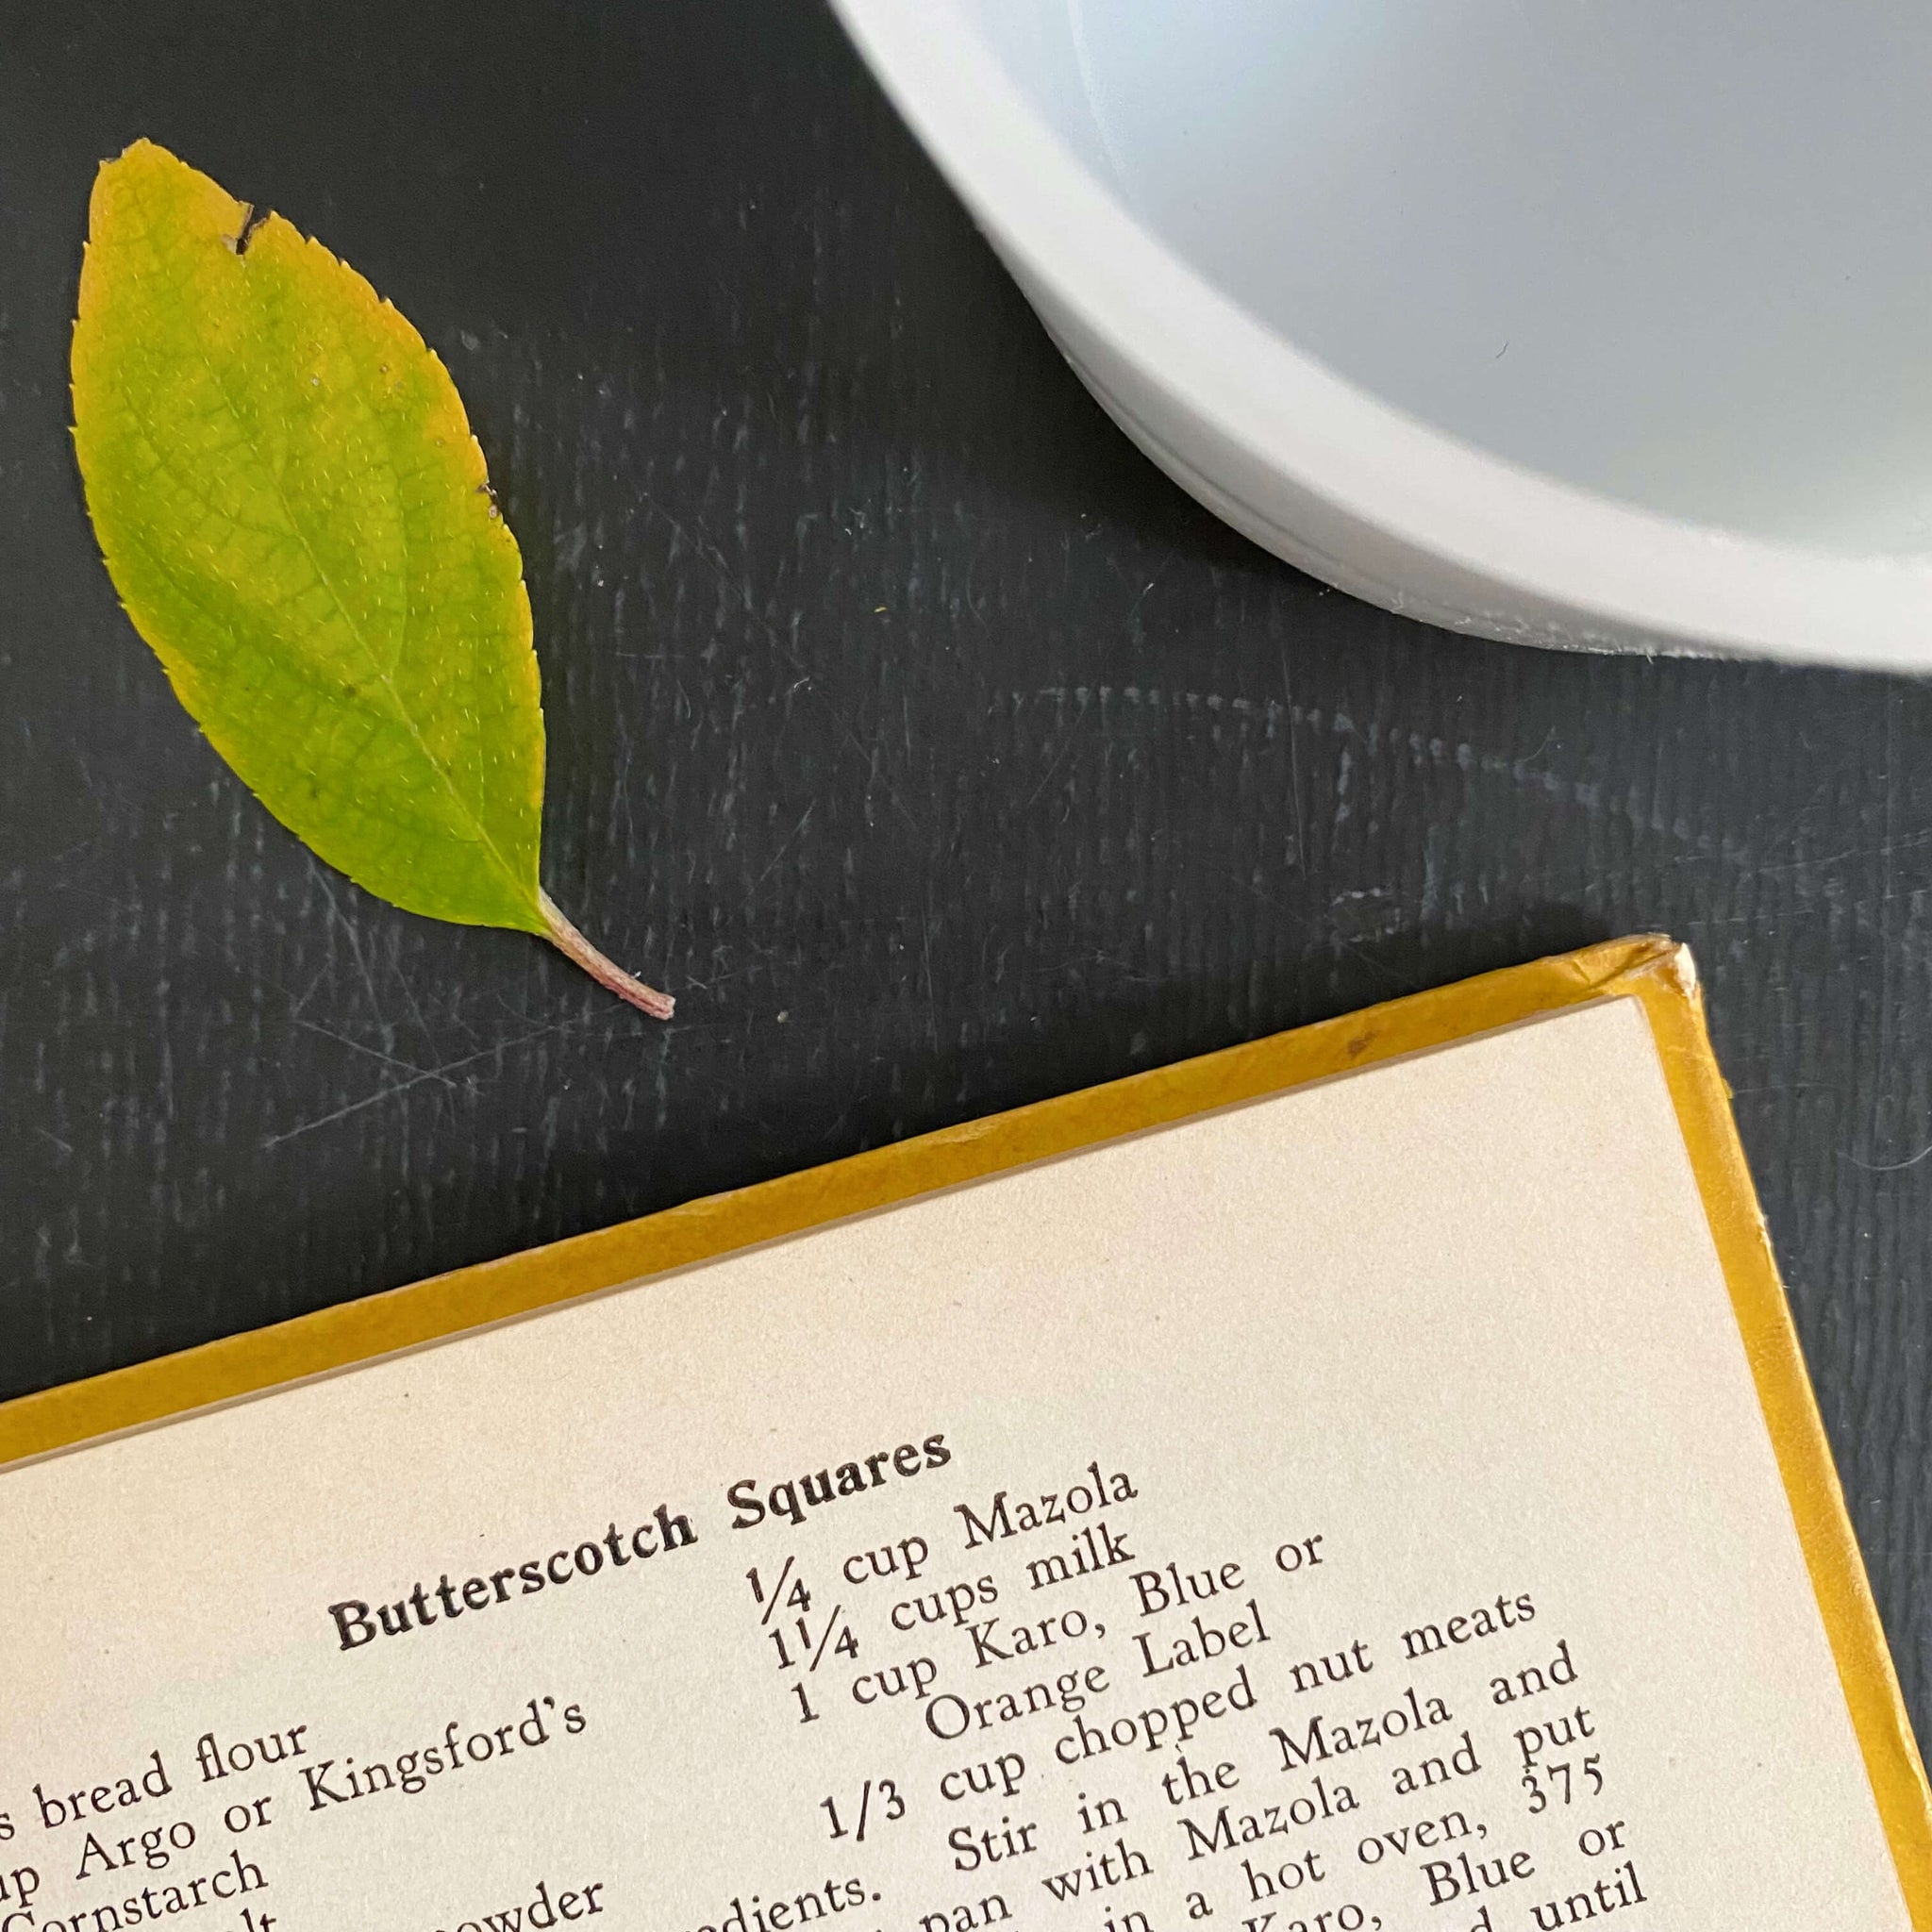 Butterscotch Squares
bread flour
Argo or Kingsford's
Cornstarch
1/4 cup Mazola
1 1/4 cups milk
1 cup Karo, Blue or
Orange Label
1/3 cup chopped nut meats
Stir in the Mazola and
pan with Mazola and put
in a hot oven, 375
Karo, Blue or
until